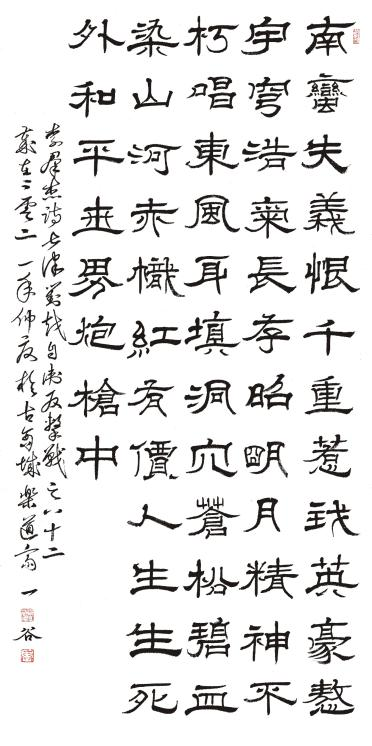 南蠻失義恨千重惹我英豪
宇穹浩氣長存昭明月精神不
朽唱東風身填洞穴蒼松碧血
染山河赤幟紅有價人生生死
外和平世界炮槍中
詩七律對越自衛反擊戰之八十二
歲在二零二一年仲夏於古城樂道齋一谷